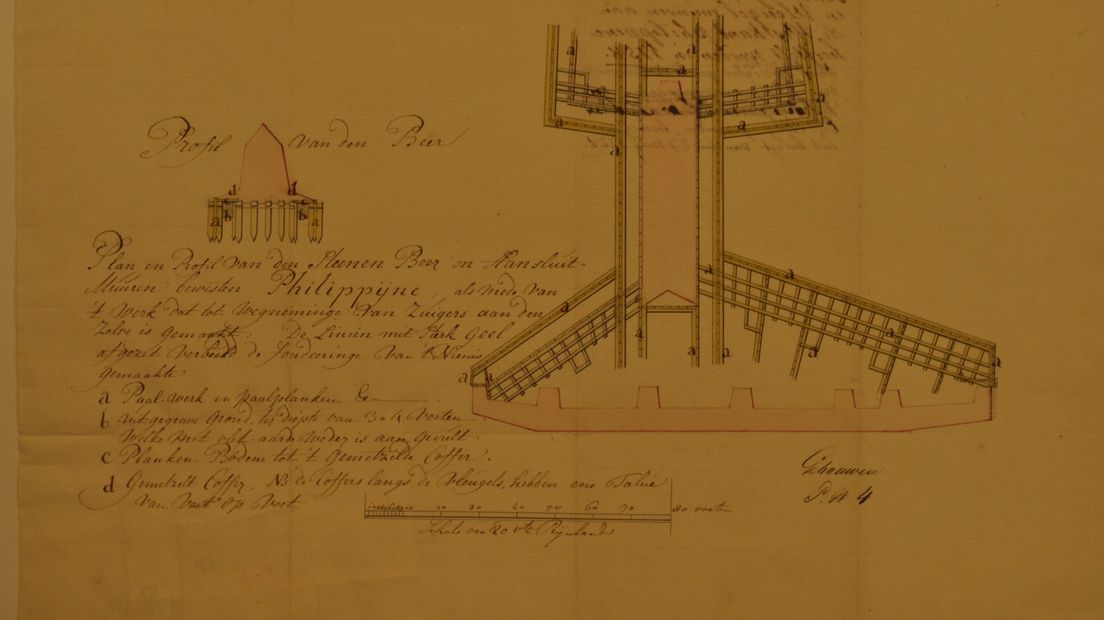 Profil van den Beer
d d
b b
a a
Plan en Profil van den Steenen Beer en Aansluit-
Muuren bewesten Philippijne, als mede van
't Werk dat tot Wegneminge van Zuigers aan den
Zelve is gemaakt: De Linien met Sterk Geel
afgezet verbeeld de fondeeringe van 't Nieuw
gemaakte
a Paal-Werk en paalplanken &
b uitgegrave Grond, ter diepte van 3 a 4 Voeten
Welke met klei-aarde weder is aangevult.
c Planken Bodem tot 't Gemetzelde Coffer.
d Gemetzelt Coffer, NB de Coffers langs de Vleugels, hebben ene Talue
Van Voet op Voet
10 20 40 50 60 70 80 voeten
Schale van 80 vts Rijnlands
Schouwen
P. N 4
a a a a a a a a a a a a a a